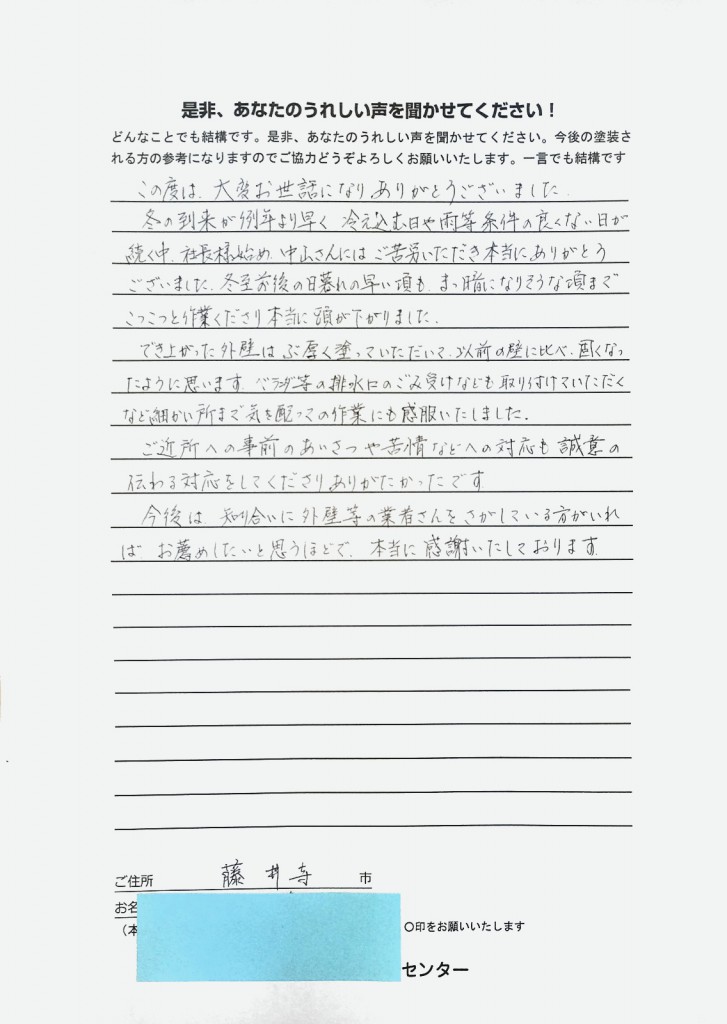 是非、あなたのうれしい声を聞かせてください！
どんなことでも結構です。是非、あなたのうれしい声を聞かせてください。今後の塗装さ
れる方の参考になりますのでご協力どうぞよろしくお願いいたします。一言でも結構です
この度は、大変お世話になりありがとうございました。
冬の到来が例年より早く 冷え込む日や雨等条件の良くない日が
続く中、社長様始め、中山さんにはご苦労いただき本当にありがとう
ございました。冬至前後の日暮れの早い頃も、まっ暗になりそうな頃まで
こつこつと作業くださり本当に頭が下がりました。
でき上がった外壁はぶ厚く塗っていただいて、以前の壁に比べ、固くなっ
たように思います。ベランダ等の排水口のごみ受けなども取り付けていただく
など細かい所まで気を配っての作業にも感服いたしました。
ご近所への事前のあいさつや苦情などへの対応も誠意の
伝わる対応をしてくださりありがたかったです
今後は、知り合いに外壁等の業者さんをさがしている方がいれ
ば、お薦めしたいと思うほどで、本当に感謝いたしております。
ご住所 藤井寺 市
お名
（本
○印をお願いいたします
センター